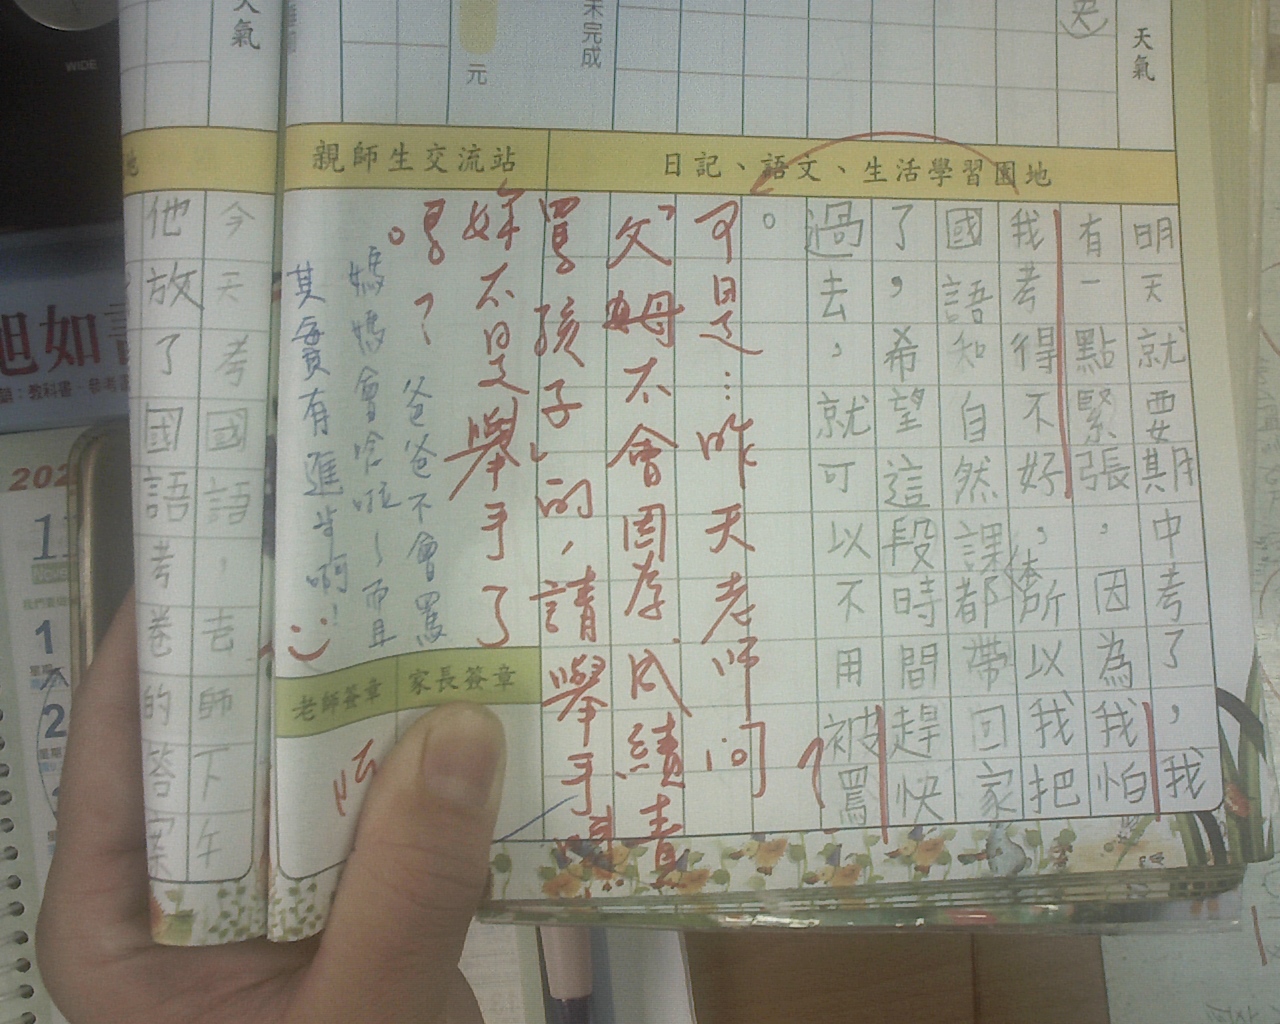 天氣
未完成
元
日記、語文、生活學習園地
親師生交流站
明天就要期中考了，我
有一點緊張，因為我怕
我考得不好，所以我把
國語和自然課都帶回家
了，希望這段時間趕快
過去，就可以不用被罵
。
可是…昨天老師問
「父母不會因為成績責
罵孩子」的，請舉手
妳不是舉手了
嗎？
爸爸不會罵
媽媽會唸啦～而且
其實有進步啊！
家長簽章
老師簽章
天氣
地
今天考國語，去師下午
他放了國語考卷的答案
WIDE
旭如
1
2